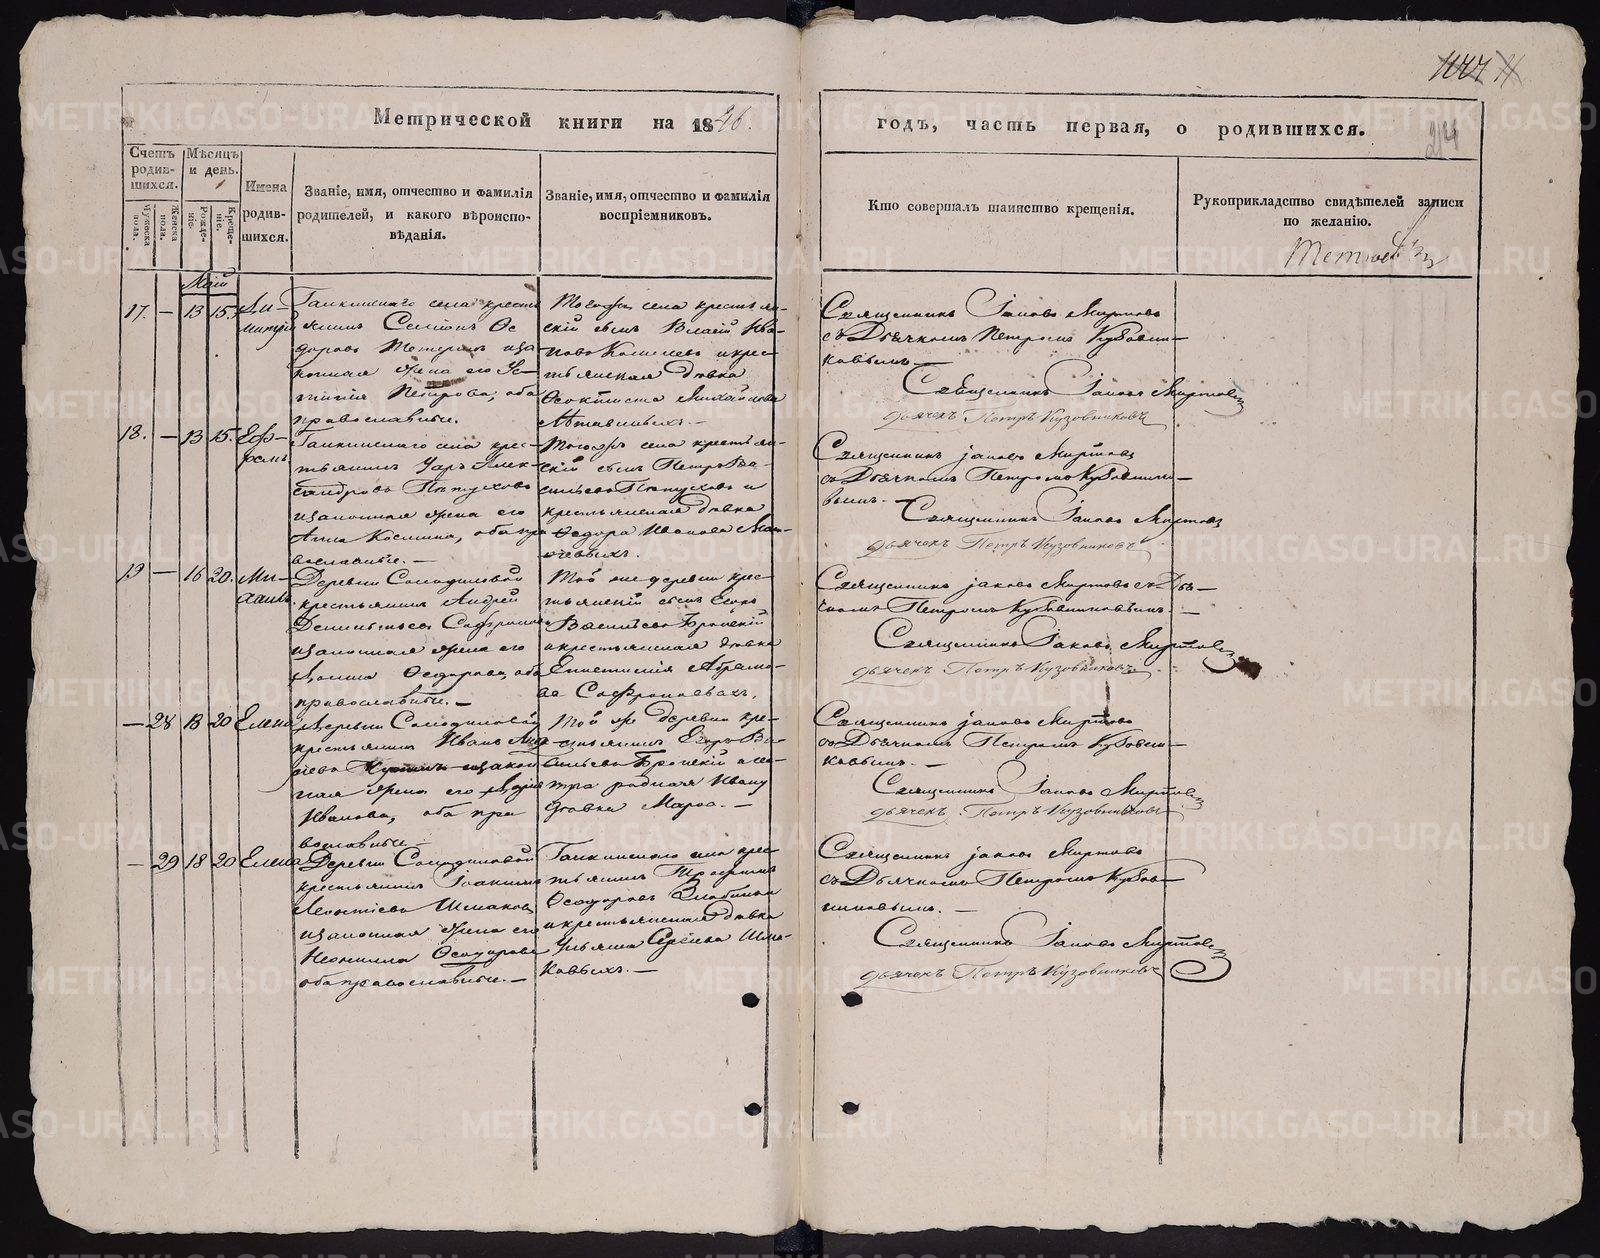 Метрической книги на 1846.
годъ, часть первая, о родившихся.
24
Счетъ родив-шихся.
Мужеска пола.
Женска пола.
Мѣсяцъ и день.
Рожде-ніе.
Креще-ніе.
Имена родив-шихся.
Званіе, имя, отчество и фамилія
родителей, и какого вѣроиспо-
вѣданія.
Званіе, имя, отчество и фамилія
воспріемниковъ.
Кто совершалъ таинство крещенія.
Рукоприкладство свидѣтелей записи
по желанію.
Май
17. — 13 15.
крестья
Семенъ Ѳе
доровъ зако
нная жена его Ус
тинія Петрова, оба
православные.
Тогожъ села крестьян-
скій сынъ Ива-
новъ и крес-
тьянская дѣвка
Михайлова
Священникъ Іаковъ Миртовъ
съ Дьячкомъ Петромъ Кузовни-
ковымъ. —
Священникъ Іаковъ Миртовъ
дьячекъ Петръ Кузовниковъ
18. — 13 15. Еф-
ремъ
села крес-
тьянинъ Уаръ Алек-
сандровъ Пѣтуховъ
и законная жена его
Анна Космина, оба пра
вославные. —
Тогожъ села крестьян-
скій сынъ Петръ Ва-
сильевъ Пѣтуховъ и
крестьянская дѣвка
Ѳедора Иванова
Священникъ Іаковъ Миртовъ
съ Дьячкомъ Петромъ Кузовнико-
вымъ. —
Священникъ Іаковъ Миртовъ
дьячекъ Петръ Кузовниковъ
19 — 16 20. Ми-
хаилъ
Деревни Солодиловой
крестьянинъ Андрей
Дементьевъ Софроновъ
и законная жена его
Ѳедорова, оба
православные. —
Той же деревни крес-
тьянскій сынъ Егоръ
Васильевъ
и крестьянская дѣвка
Абрамо-
ва
Священникъ Іаковъ Миртовъ съ Дья-
чкомъ Петромъ Кузовниковымъ. —
Священникъ Іаковъ Миртовъ
дьячекъ Петръ Кузовниковъ
— 28 18 20 Елена
Деревни Солодиловой
крестьянинъ Иванъ
закон
ная жена его
Иванова, оба пра
вославные. —
Той же деревни кре-
стьянинъ Егоръ Ва-
сильевъ
родная Ивану
Марѳа. —
Священникъ Іаковъ Миртовъ
съ Дьячкомъ Петромъ Кузовни-
ковымъ. —
Священникъ Іаковъ Миртовъ
дьячекъ Петръ Кузовниковъ
— 29 18 20 Елена
Деревни Солодиловой
крестьянинъ Іоакимъ
Леонтіевъ Шмаковъ
и законная жена его
Неонилла Ѳеодорова
оба православные. —
села крес-
тьянинъ Трофимъ
Ѳеодоровъ Злобинъ
и крестьянская дѣвка
Ульяна Сергѣева Шма-
ковыхъ. —
Священникъ Іаковъ Миртовъ
съ Дьячкомъ Петромъ Кузов-
никовымъ. —
Священникъ Іаковъ Миртовъ
дьячекъ Петръ Кузовниковъ
METRIKI.GASO-URAL.RU